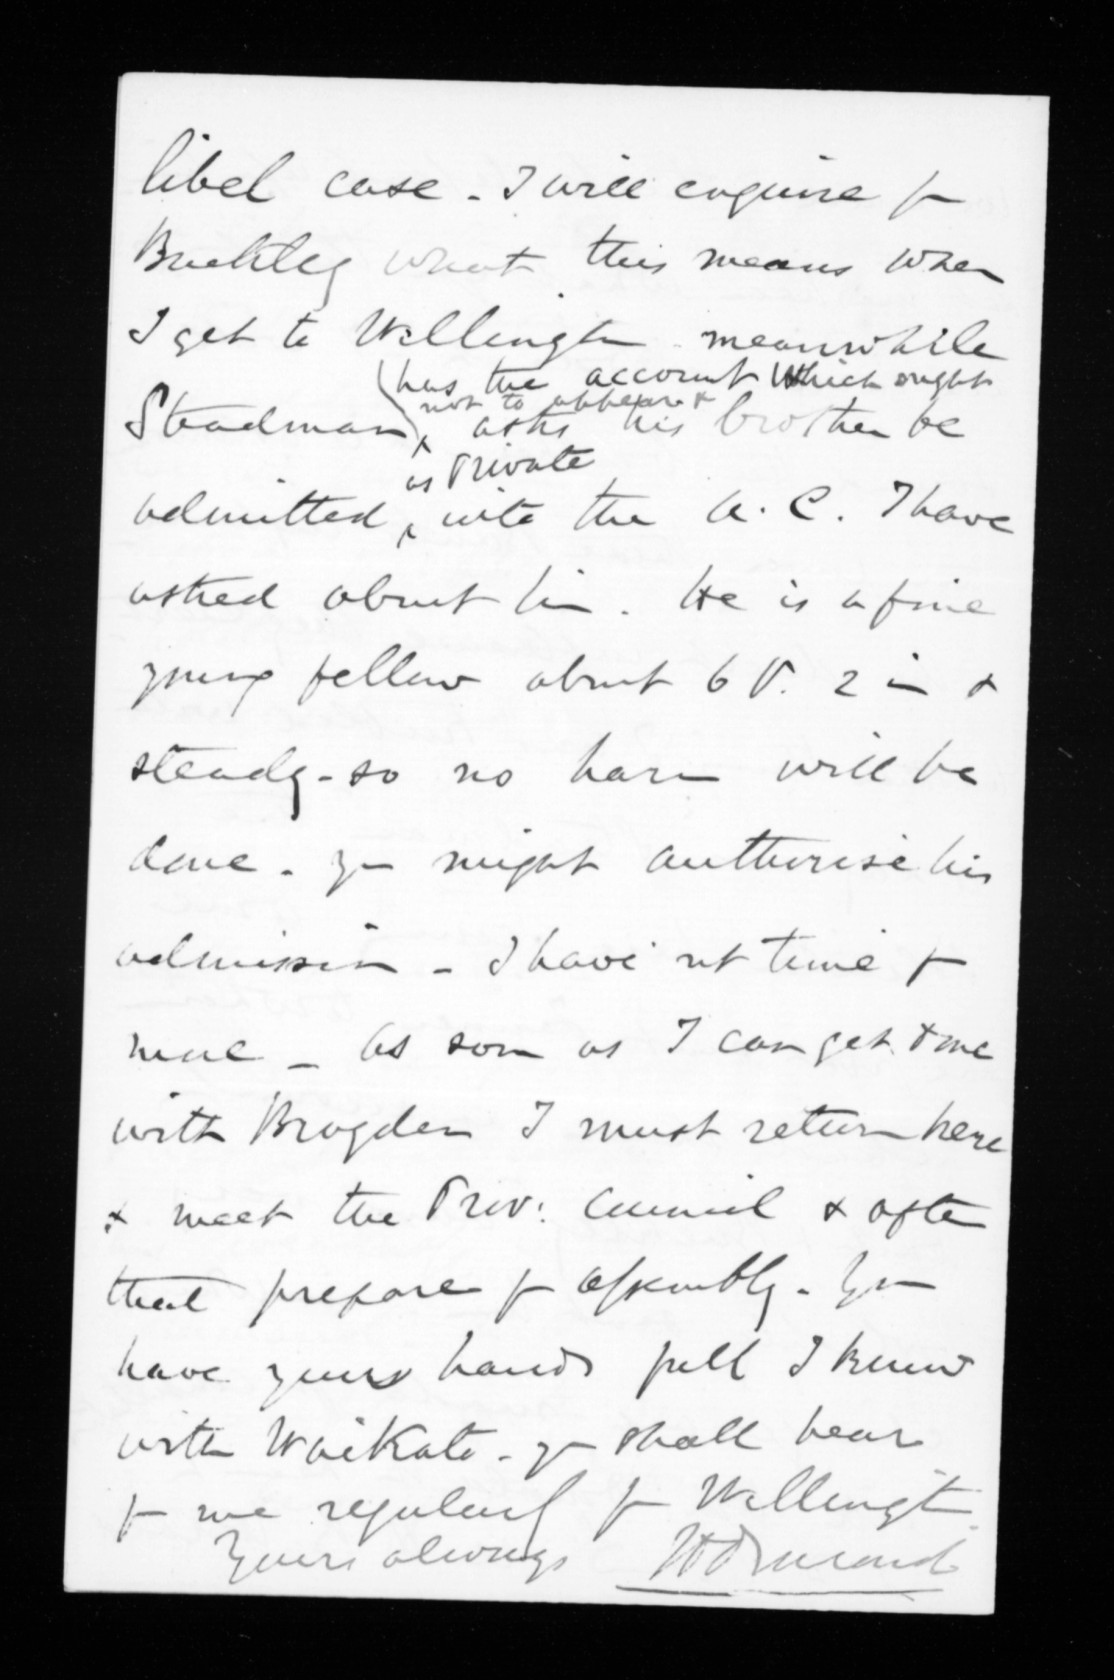 libel case - I will enquire fr
Buckley what this means when
I get to Wellington meanwhile
(has the account which ought
not to appear &
Steadman) asks his brother be
as Private
admitted into the A. C. I have
asked about him. He is a fine
young fellow about 6 ft. 2 in &
steady - so no harm will be
done - you might authorise his
admission - I have not time fr
more - As soon as I can get done
with Brogden I must return here
& meet the Prov: Council & after
that prepare fr Assembly - You
have yours hands full I know
with Waikato - you shall hear
fr me regularly fr Wellington
Yours always JD Ormond